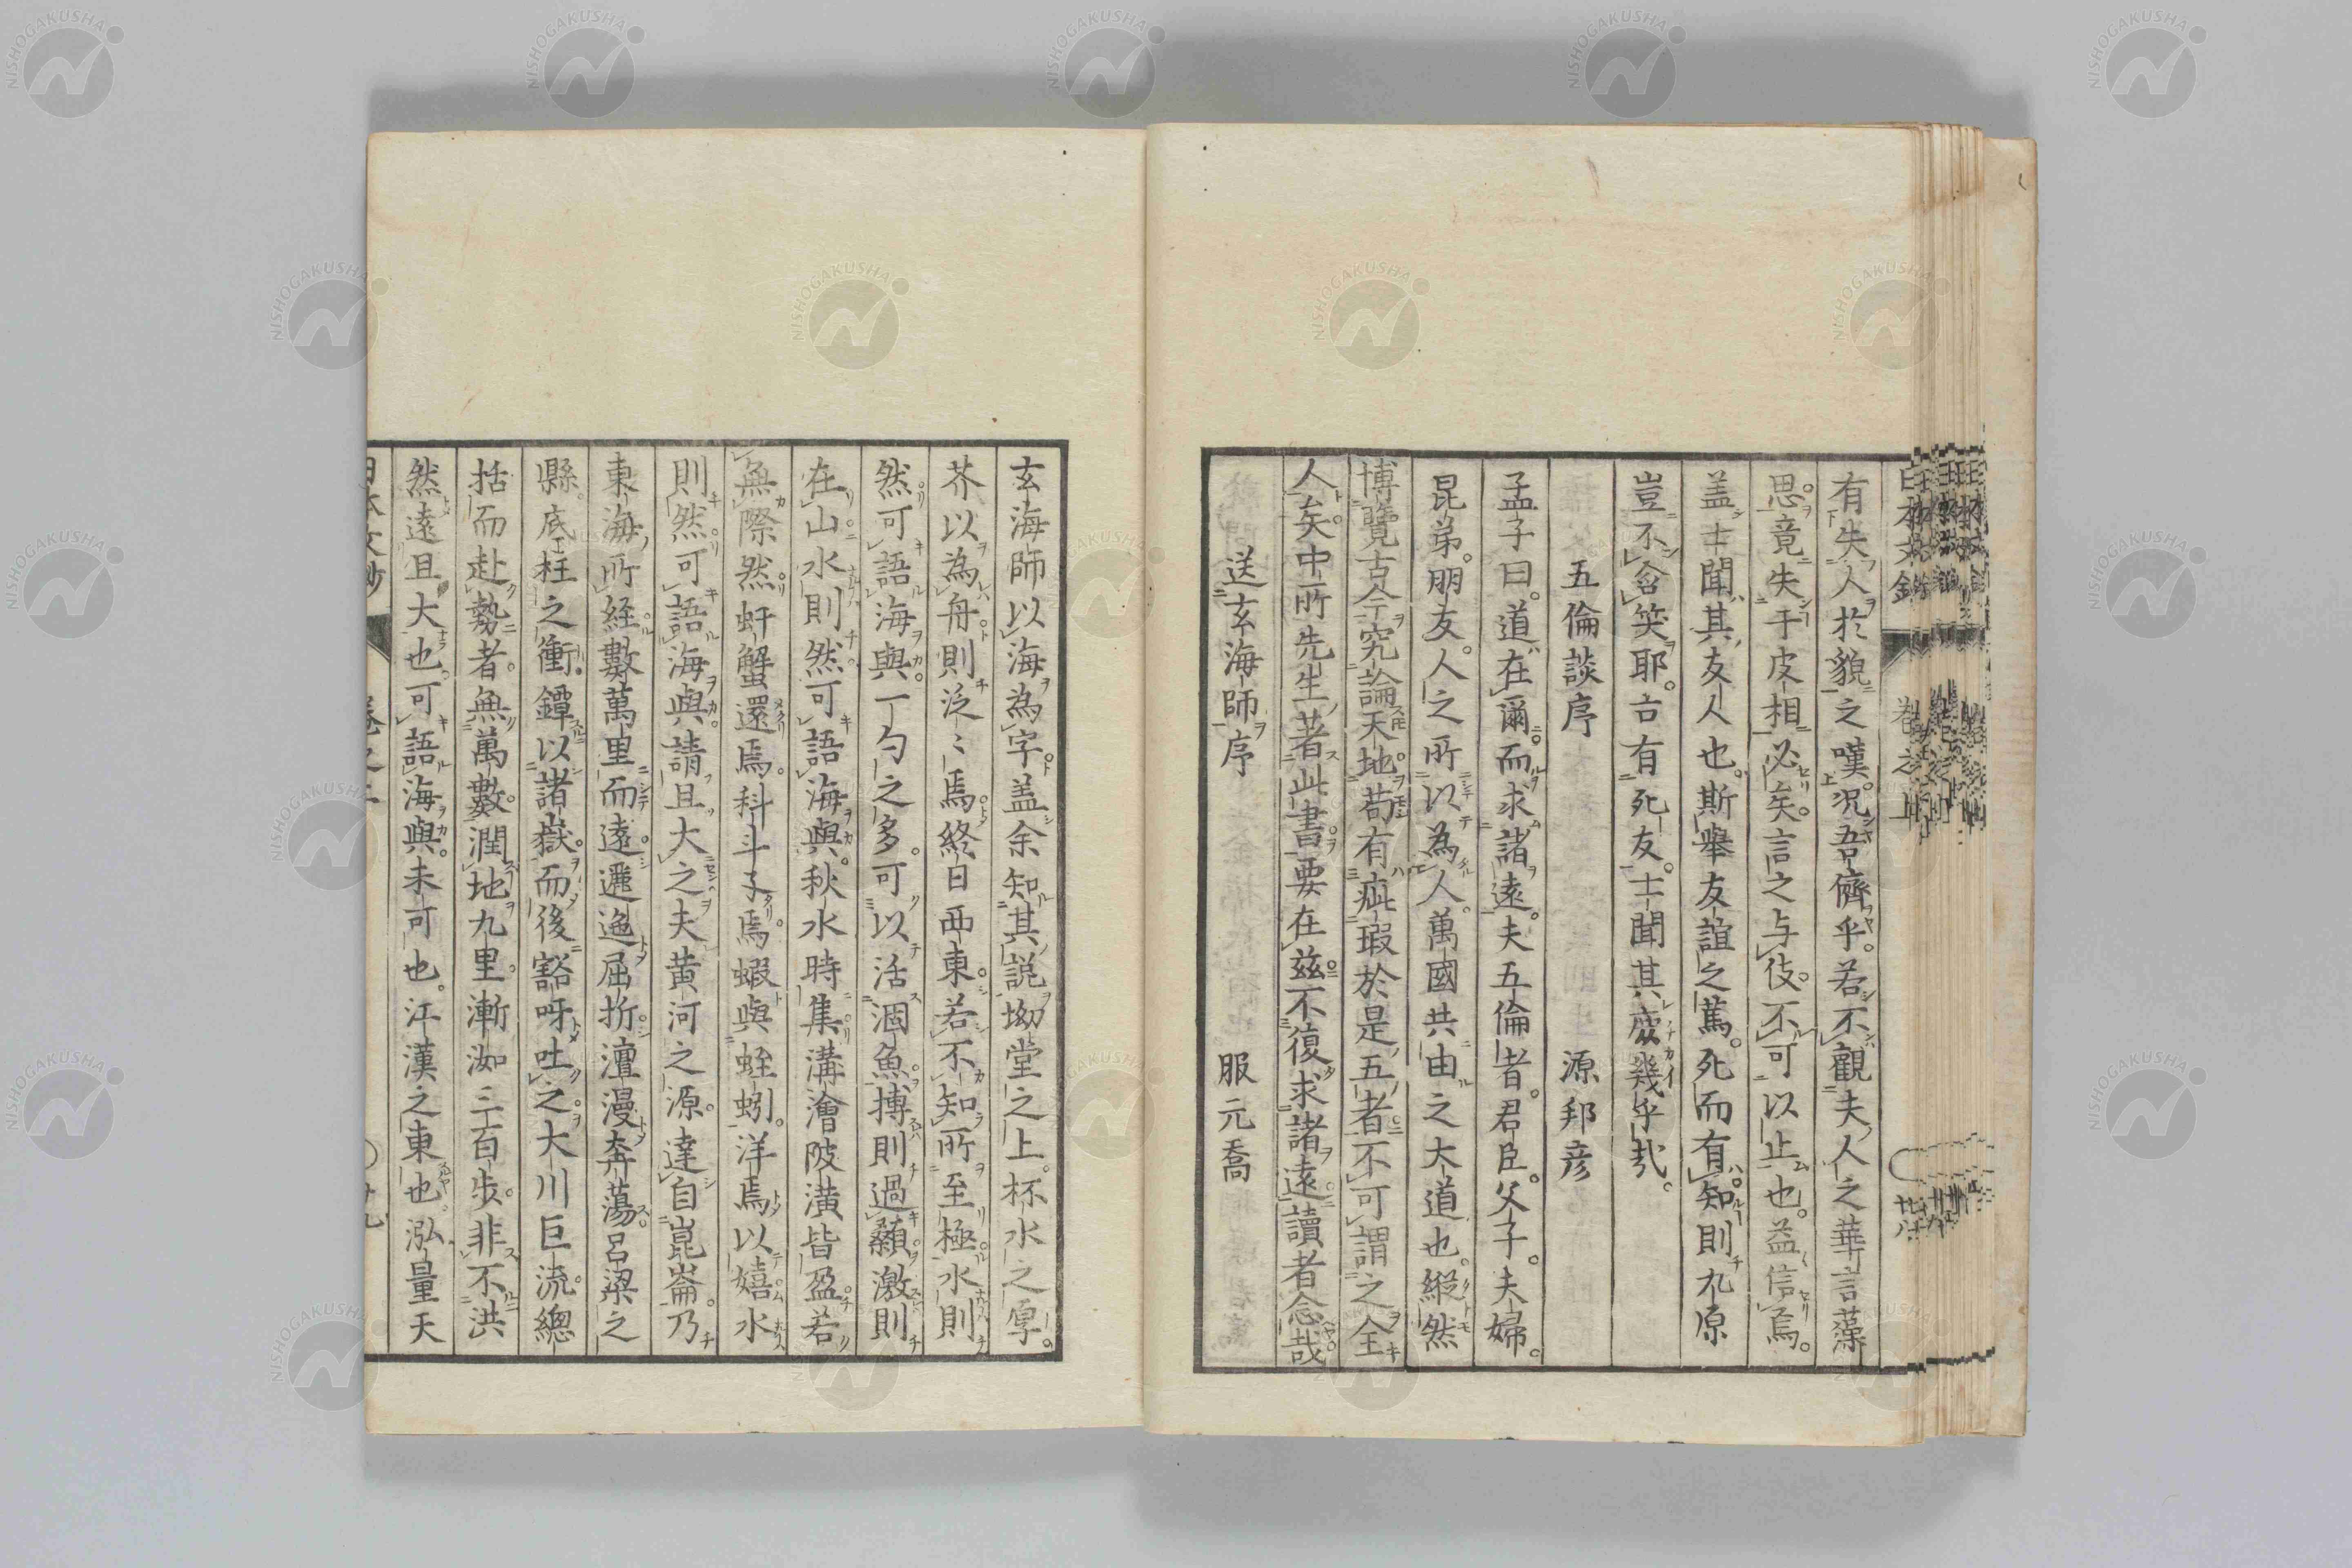 有失人於貌之嘆。況吾儕乎。若不觀夫人之華言藻
思。竟失于皮相必矣。言之与伎。不可以止也。益信焉。
盖士聞其友人也。斯舉友誼之篤。死而有知則九原
豈不含笑耶。古有死友。士聞其庶幾乎哉。
五倫談序 源邦彦
孟子曰。道在爾而求諸遠。夫五倫者。君臣。父子。夫婦。
昆弟。朋友。人之所以為人。萬國共由之大道也。縦然
博覽古今究論天地。苟有疵瑕於是五者不可謂之全
人矣。中所先生著此書。要在茲不復求諸遠。讀者念哉
送玄海師序 服元喬
玄海師以海為字盖余知其説坳堂之上。杯水之厚。
芥以為舟則泛〻焉終日西東。若不知所至極水則
然可語海與。一勺之多。可以活涸魚。搏則過顙。激則
在山水則然可語海與。秋水時集溝澮陂潢皆盈若
無際然虷蟹還焉。科斗子焉。蝦與蛭蚓。洋焉以嬉水
則然可語海與請且大之夫黄河之源。達自崑崙。乃
東海所経數萬里而遠邐迤屈折澶漫奔蕩呂梁之
縣。底柱之衝。鐔以諸嶽。而後豁呀吐之大川巨流總
括而赴勢者。無萬數。潤地九里。漸洳三百步。非不洪
然遠且大也。可語海與。未可也。江漢之東也泓量天
日本文鈔 巻之上 廿八